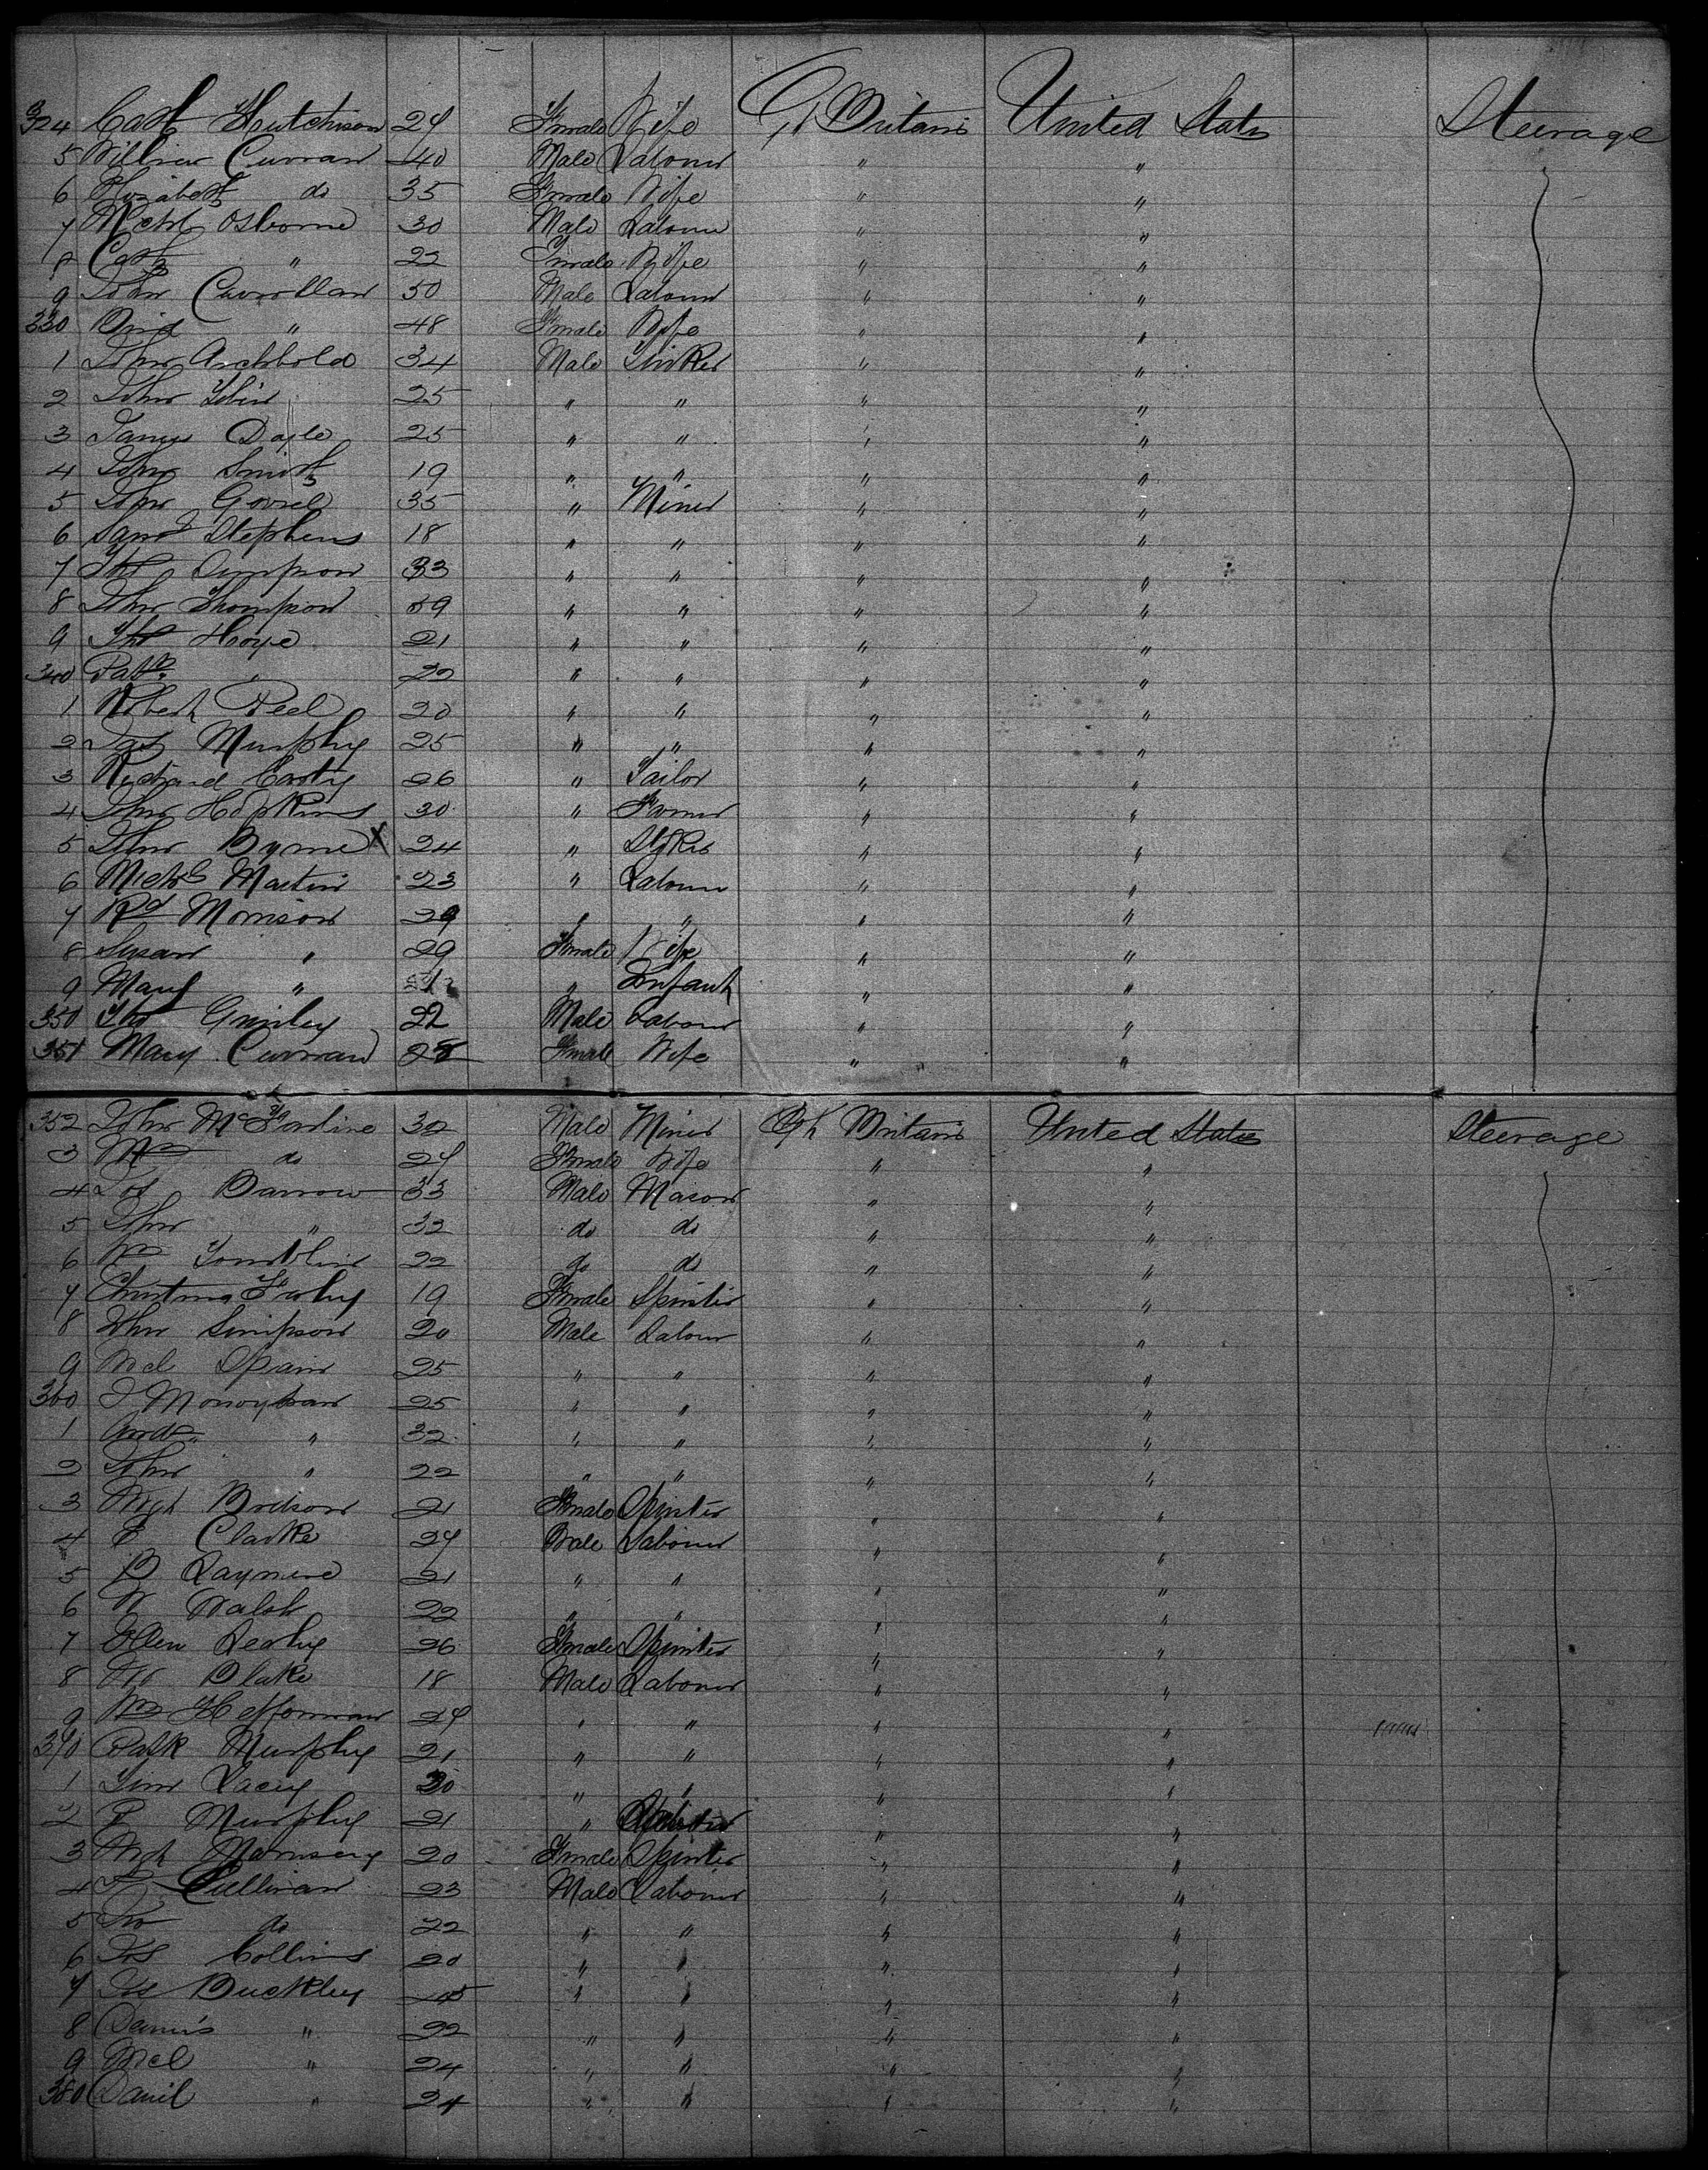 324 Cath Hutchison 24 Female Wife Gt Britain United States Steerage
5 William Curran 40 Male Labourer " "
6 Elizabeth do 35 Female Wife " "
7 Michl Osborne 30 Male Labourer " "
8 Cath " 22 Female Wife " "
9 John 50 Male Labourer " "
330 Brid " 48 Female Wife " "
1 John Archbold 34 Male " "
2 John Tobin 25 " " " "
3 James Doyle 25 " " " "
4 John Smith 19 " " " "
5 John 35 " Miner " "
6 Saml Stephens 18 " " " "
7 Thos Simpson 33 " " " "
8 John Thompson 59 " " " "
9 Thos Hoye 21 " " " "
340 Patk " 22 " " " "
1 Robert Peel 20 " " " "
2 Murphy 25 " " " "
3 Richard Carty 26 " Tailor " "
4 John Hopkins 30 " Farmer " "
5 John Byrne X 24 " " "
6 Michl Martin 23 " Labourer " "
7 Rd Morrison 29 " " " "
8 Susan " 29 Female Wife " "
9 Mary " " Infant " "
350 Thos 22 Male Labourer " "
351 Mary Curran 28 Female Wife " "
352 John McFarline 32 Male Miner Gt Britain United States Steerage
3 Mrs do 24 Female Wife " "
4 Jos Barrow 33 Male Mason " "
5 John " 32 do do " "
6 Wm Tomblin 22 do do " "
7 Christina Farley 19 Female Spinster " "
8 John Simpson 20 Male Labourer " "
9 Mcl Spain 25 " " " "
360 J 25 " " " "
1 Andw " 32 " " " "
2 John " 22 " " " "
3 Mgt 21 Female Spinster " "
4 E Clarke 24 Male Labourer " "
5 B 21 " " " "
6 W Walsh 22 " " " "
7 Ellen Leahy 26 Female Spinster " "
8 Blake 18 Male Labourer " "
9 Wm Heffernan 24 " " " "
370 Patk Murphy 21 " " " "
1 Tim Lacey 30 " " " "
2 P Murphy 21 " " "
3 Mgt 20 Female Spinster " "
4 Sullivan 23 Male Labourer " "
5 Jno do 22 " " " "
6 Jos Collins 20 " " " "
7 Jos Buckley " " " "
8 Dennis " 22 " " " "
9 Mcl " 24 " " " "
380 Daniel " 24 " " " "